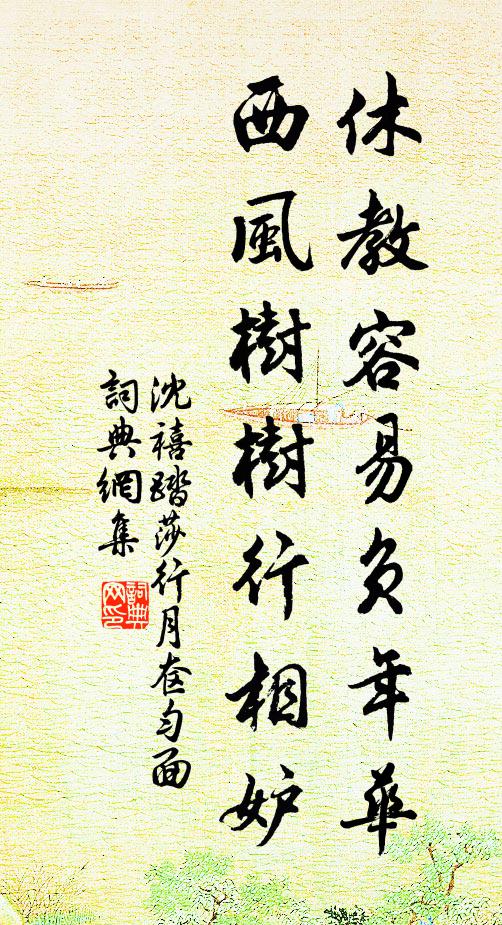 休教容易負年華
西風樹樹行相妒
沈禧踏莎行月奩勻面
詞典網集
詞典
网印